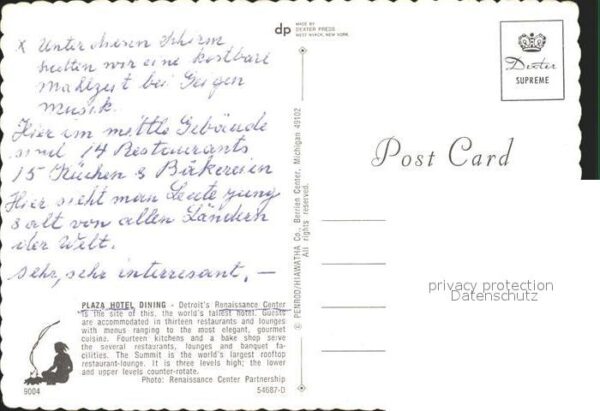 x Unter diesem Schirm
hielten wir eine kostbare
Mahlzeit bei Geigen
musik.
Hier im mittle Gebäude
sind 14 Restaurants
15 Küchen & Bäkereien
Hier sieht man Leute jung
& alt von allen Ländern
der Welt.
sehr, sehr interresant. —
PLAZA HOTEL DINING - Detroit's Renaissance Center
is the site of this, the world's tallest hotel. Guests
are accommodated in thirteen restaurants and lounges
with menus ranging to the most elegant, gourmet
cuisine. Fourteen kitchens and a bake shop serve
the several restaurants, lounges and banquet fa-
cilities. The Summit is the world's largest rooftop
restaurant-lounge. It is three levels high; the lower
and upper levels counter-rotate.
Photo: Renaissance Center Partnership
9004
54687-D
dp MADE BY
DEXTER PRESS
WEST NYACK, NEW YORK
© PENROD/HIAWATHA Co., Berrien Center, Michigan 49102
All rights reserved.
Dexter
SUPREME
Post Card
privacy protection
Datenschutz